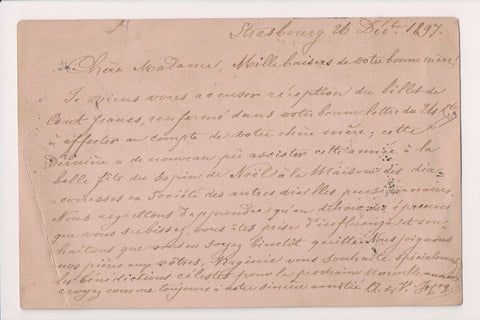 Strasbourg 26 Déc. 1897.
Chère Madame, Mille baisers de votre bonne mère!
Je viens vous accuser réception du billet de
Cent francs, renfermé dans votre bonne lettre du 24 ct.
à affecter au compte de votre chère mère; cette
dernière a de nouveau pu assister cette année à la
belle fête du sapin de Noël à la Maison des dia-
conesses en Société des autres vieilles pensionnaires.
Nous regrettons d'apprendre qu'en dehors des épreuves
que vous subissez, vous êtes prise d'influenza et sou-
haitons que vous en soyez bientôt quitte. Nous joignons
nos prières aux vôtres, Virginie vous souhaite spécialement
les bénédictions célestes pour la prochaine nouvelle année,
croyez comme toujours à notre sincère amitié A. & V.